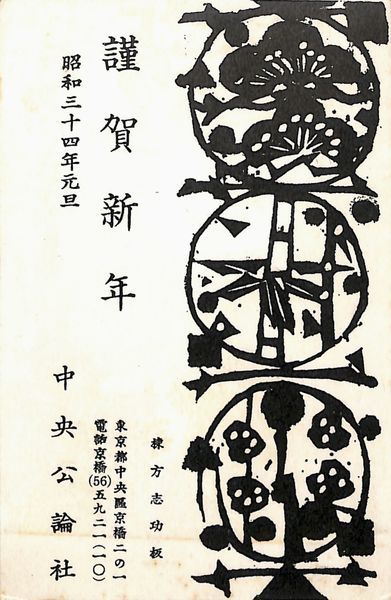 謹賀新年
昭和三十四年元旦
棟方志功板
東京都中央區京橋二の一
電話京橋(56)五九二一(一〇)
中央公論社